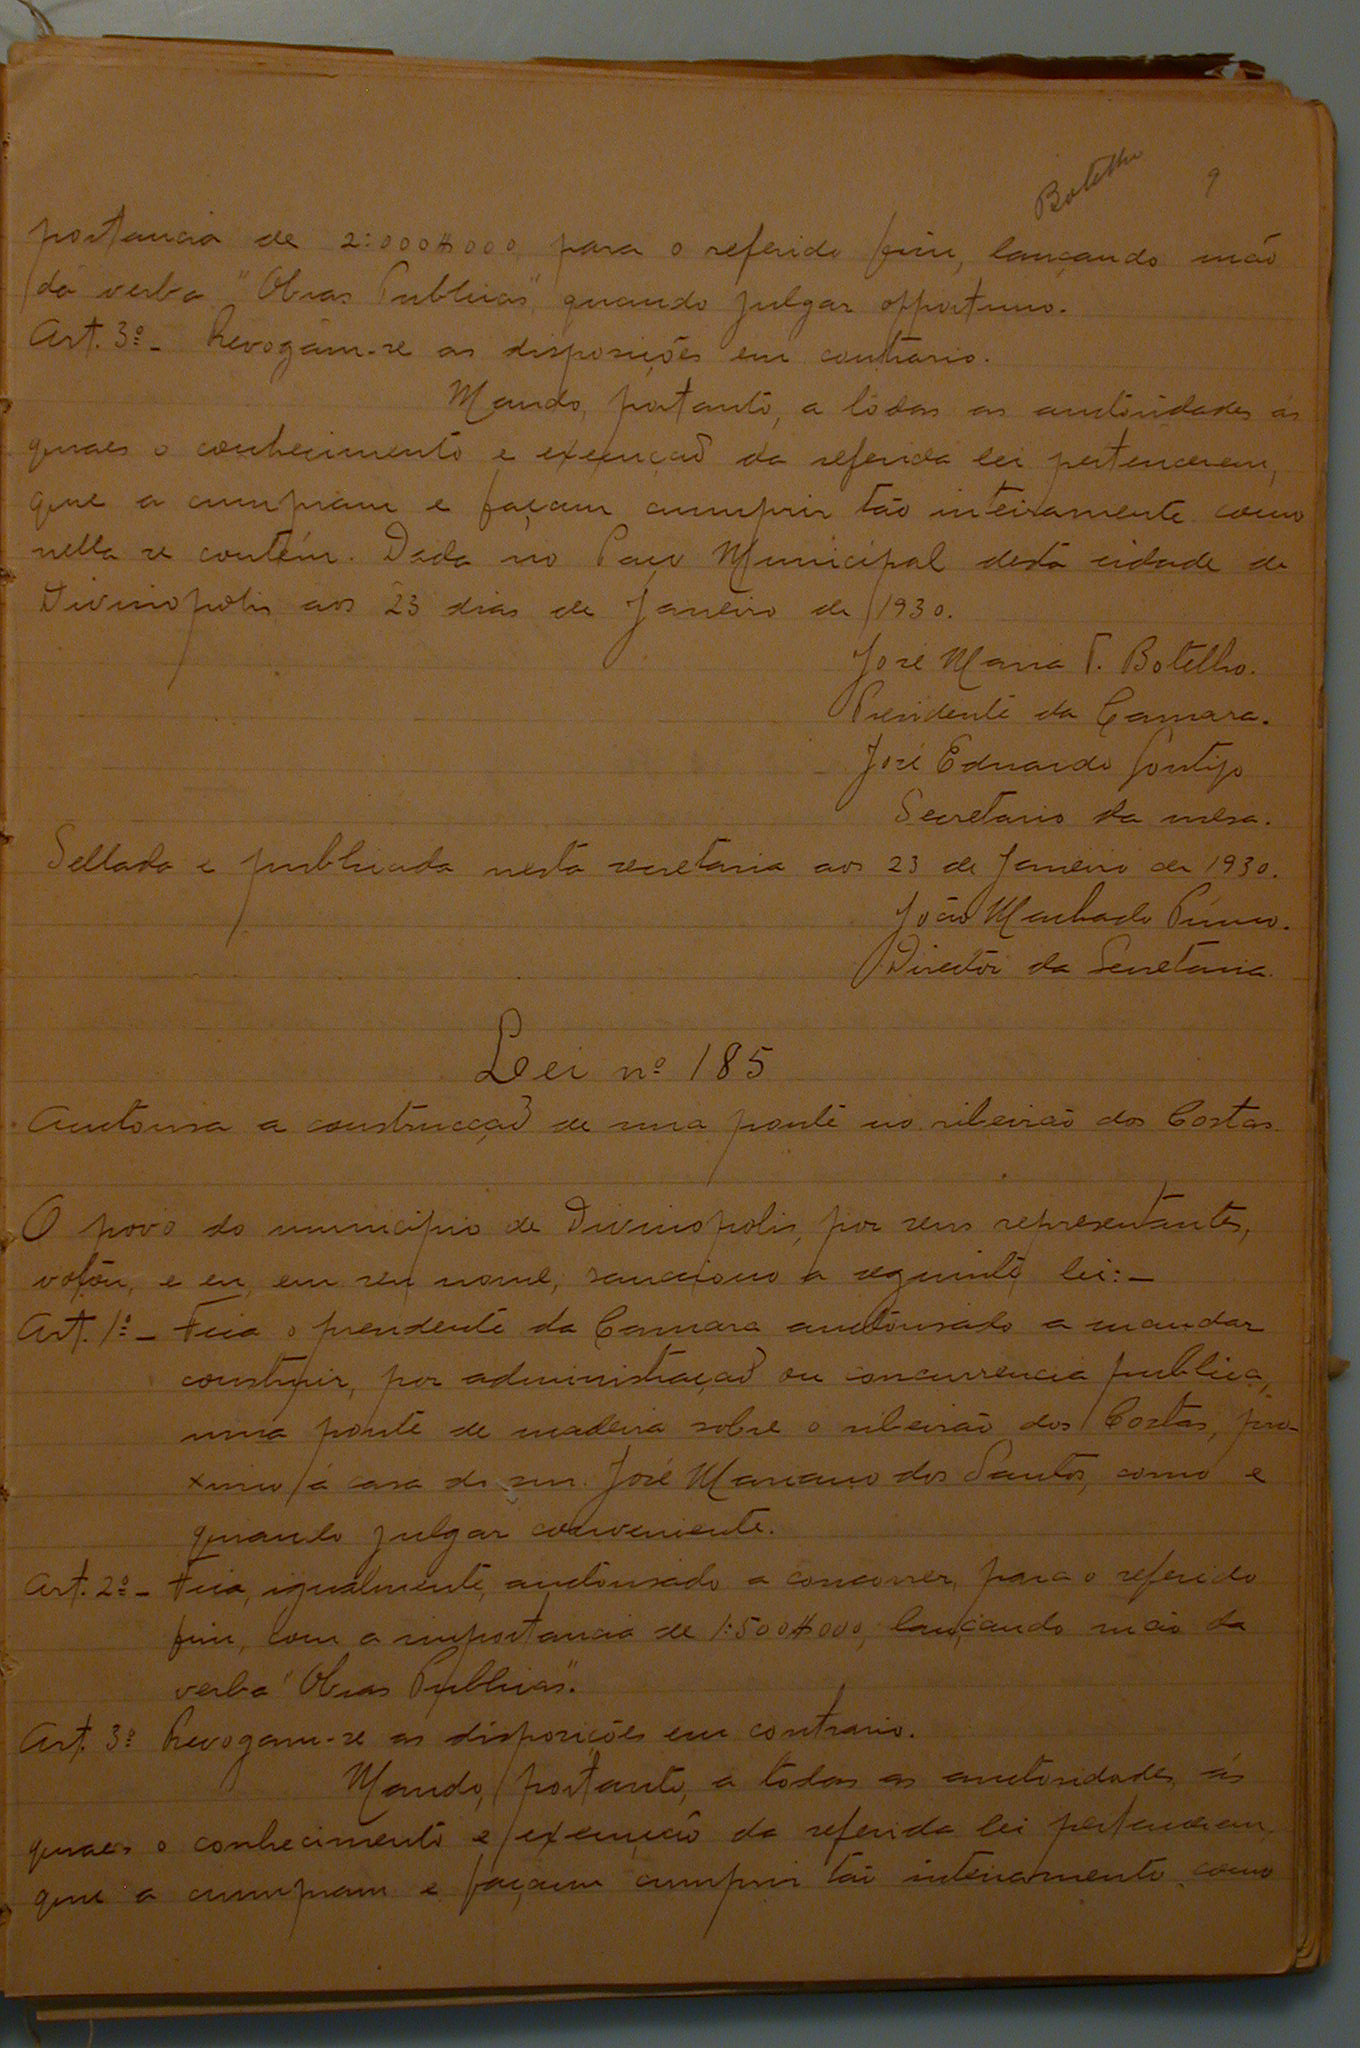 Botelho 9
portancia de 2:000$000 para o referido fim, lançando mão
da verba "Obras Publicas", quando julgar opportuno.
Art. 3º - Revogam-se as disposições em contrario.
Mando, portanto, a todas as auctoridades ás
quaes o conhecimento e execução da referida lei pertencerem,
que a cumpram e façam cumprir tão inteiramente como
nella se contém. Dada no Paço Municipal desta cidade de
Divinopolis aos 23 dias de Janeiro de 1930.
José Maria P. Botelho.
Presidente da Camara.
José Eduardo Gontijo
Secretario da mesa.
Sellada e publicada nesta secretaria aos 23 de Janeiro de 1930.
João Machado
Director da Secretaria.
Lei nº 185
Auctorisa a construcção de uma ponte no ribeirão dos Costas.
O povo do municipio de Divinopolis, por seus representantes,
votou, e eu, em seu nome, sancciono a seguinte lei: -
Art. 1º - Fica o presidente da Camara auctorisado a mandar
construir, por administração ou concurrencia publica,
uma ponte de madeira sobre o ribeirão dos Costas, pro-
ximo á casa do snr. José Mariano dos Santos, como e
quando julgar conveniente.
Art. 2º - Fica, igualmente, auctorisado a concorrer, para o referido
fim, com a importancia de 1:500$000, lançando mão da
verba "Obras Publicas".
Art. 3º Revogam-se as disposições em contrario.
Mando, portanto, a todas as auctoridades, ás
quaes o conhecimento e execução da referida lei pertencerem
que a cumpram e façam cumprir tão inteiramente como